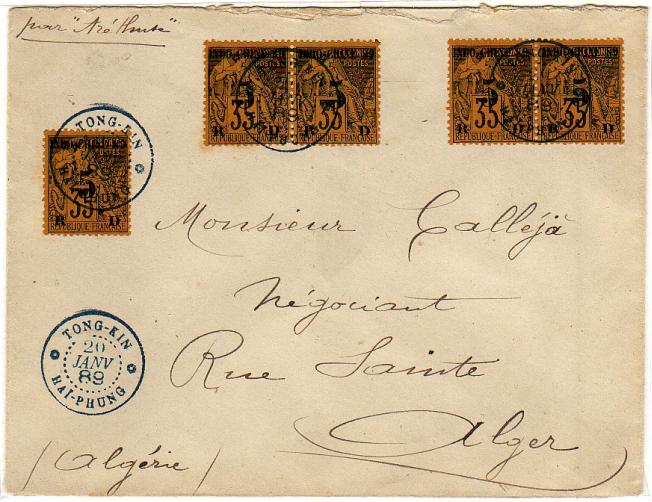 par "Aréthuse"
INDO-CHINE 89 POSTES INDO-CHINE 89 POSTES INDO-CHINE 89 POSTES INDO-CHINE 89 POSTES
5 5 5 5
35 35 35 35
R D R D R D R D
REPUBLIQUE FRANÇAISE REPUBLIQUE FRANÇAISE REPUBLIQUE FRANÇAISE REPUBLIQUE FRANÇAISE
TONG-KIN
5
35
R D
REPUBLIQUE FRANÇAISE
Monsieur Calléjà
Négociant
TONG-KIN
20
JANV
89
HAI-PHUNG
Rue Sainte
Alger
(Algérie)